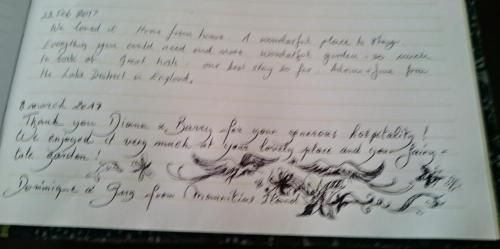 22 Feb 2017
We loved it Home from home. A wonderful place to stay.
Everything you could need and more wonderful garden - so much
to look at. Great hosts - our best stay so far. + June from
the Lake District in England.
8 march 2017
Thank you Diana & Barry for your generous hospitality!
We enjoyed it very much at your lovely place and your fairy-
tale garden!
Dominique & from Mauritius Island